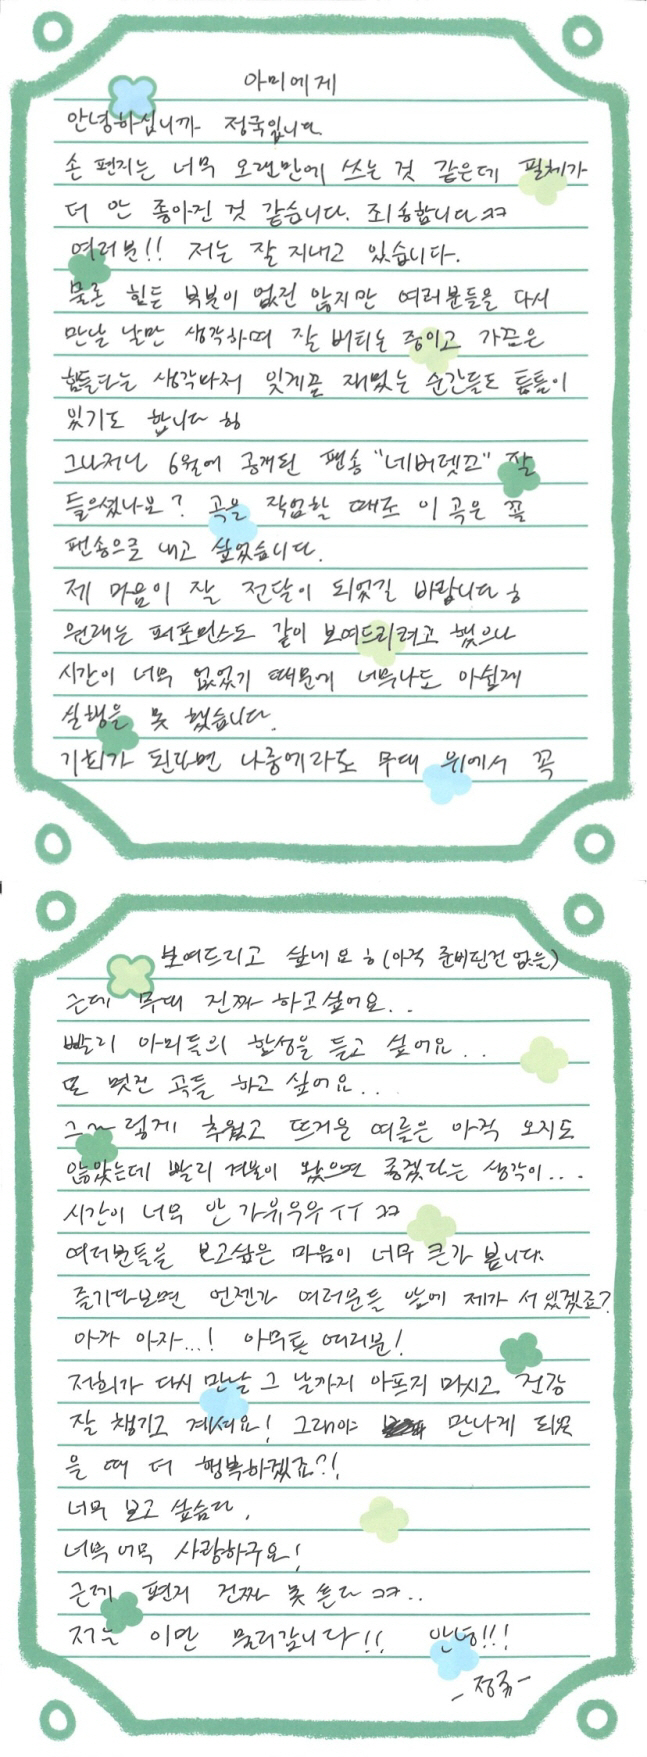 아미에게
안녕하십니까 정국입니다
손 편지는 너무 오랜만에 쓰는 것 같은데 필체가
더 안 좋아진 것 같습니다. 죄송합니다ㅋㅋ
여러분!! 저는 잘 지내고 있습니다.
물론 힘든 부분이 없진 않지만 여러분들을 다시
만날 날만 생각하며 잘 버티는 중이고 가끔은
힘들다는 생각마저 잊게끔 재밌는 순간들도 틈틈이
있기도 합니다 ㅎㅎ
그나저나 6월에 공개된 팬송 "네버렛고" 잘
들으셨나요? 곡을 작업할 때부터 이 곡은 꼭
팬송으로 내고 싶었습니다.
제 마음이 잘 전달이 되었길 바랍니다 ㅎ
원래는 퍼포먼스도 같이 보여드리려고 했으나
시간이 너무 없었기 때문에 너무나도 아쉽게
실행을 못 했습니다.
기회가 된다면 나중에라도 무대 위에서 꼭
보여드리고 싶네요 ㅎ (아직 준비된건 없음)
근데 무대 진짜 하고싶어요..
빨리 아미들의 함성을 듣고 싶어요..
또 멋진 곡들 하고 싶어요...
그~~렇게 춥고 뜨거운 여름은 아직 오지도
않았는데 빨리 겨울이 왔으면 좋겠다는 생각이....
시간이 너무 안 가유우우ㅜㅜ ㅋㅋ
여러분들을 보고싶은 마음이 너무 큰가 봅니다.
즐기다보면 언젠가 여러분들 앞에 제가 서 있겠죠?
아자 아자...! 아무튼 여러분!
저희가 다시 만날 그 날까지 아프지 마시고 건강
잘 챙기고 계셔요! 그래야 만나게 되었
을 때 더 행복하겠죠?!
너무 보고 싶습다.
너무 너무 사랑하구요!
근데 편지 진짜 못 쓴다 ㅋㅋ..
저는 이만 물러갑니다!! 안녕!!!
- 정국 -